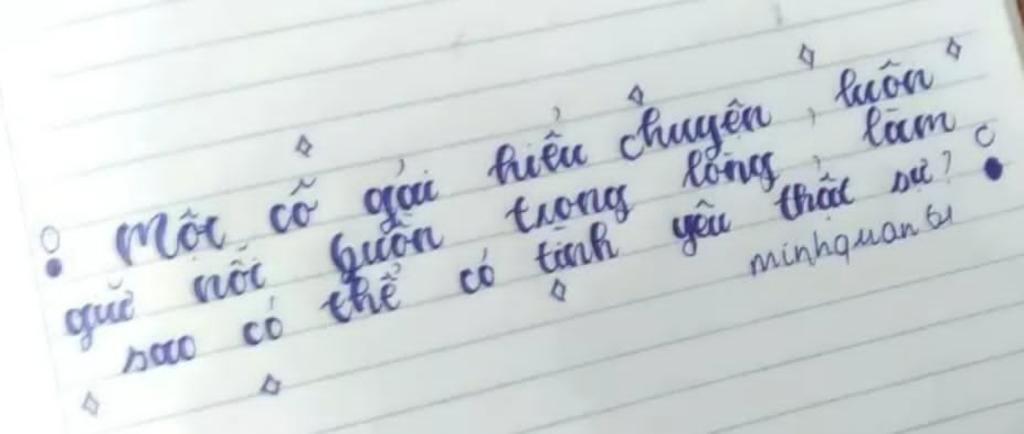 Một cô gái hiểu chuyện, luôn
giữ nỗi buồn trong lòng, làm
sao có thể có tình yêu thật sự?
minhquan61